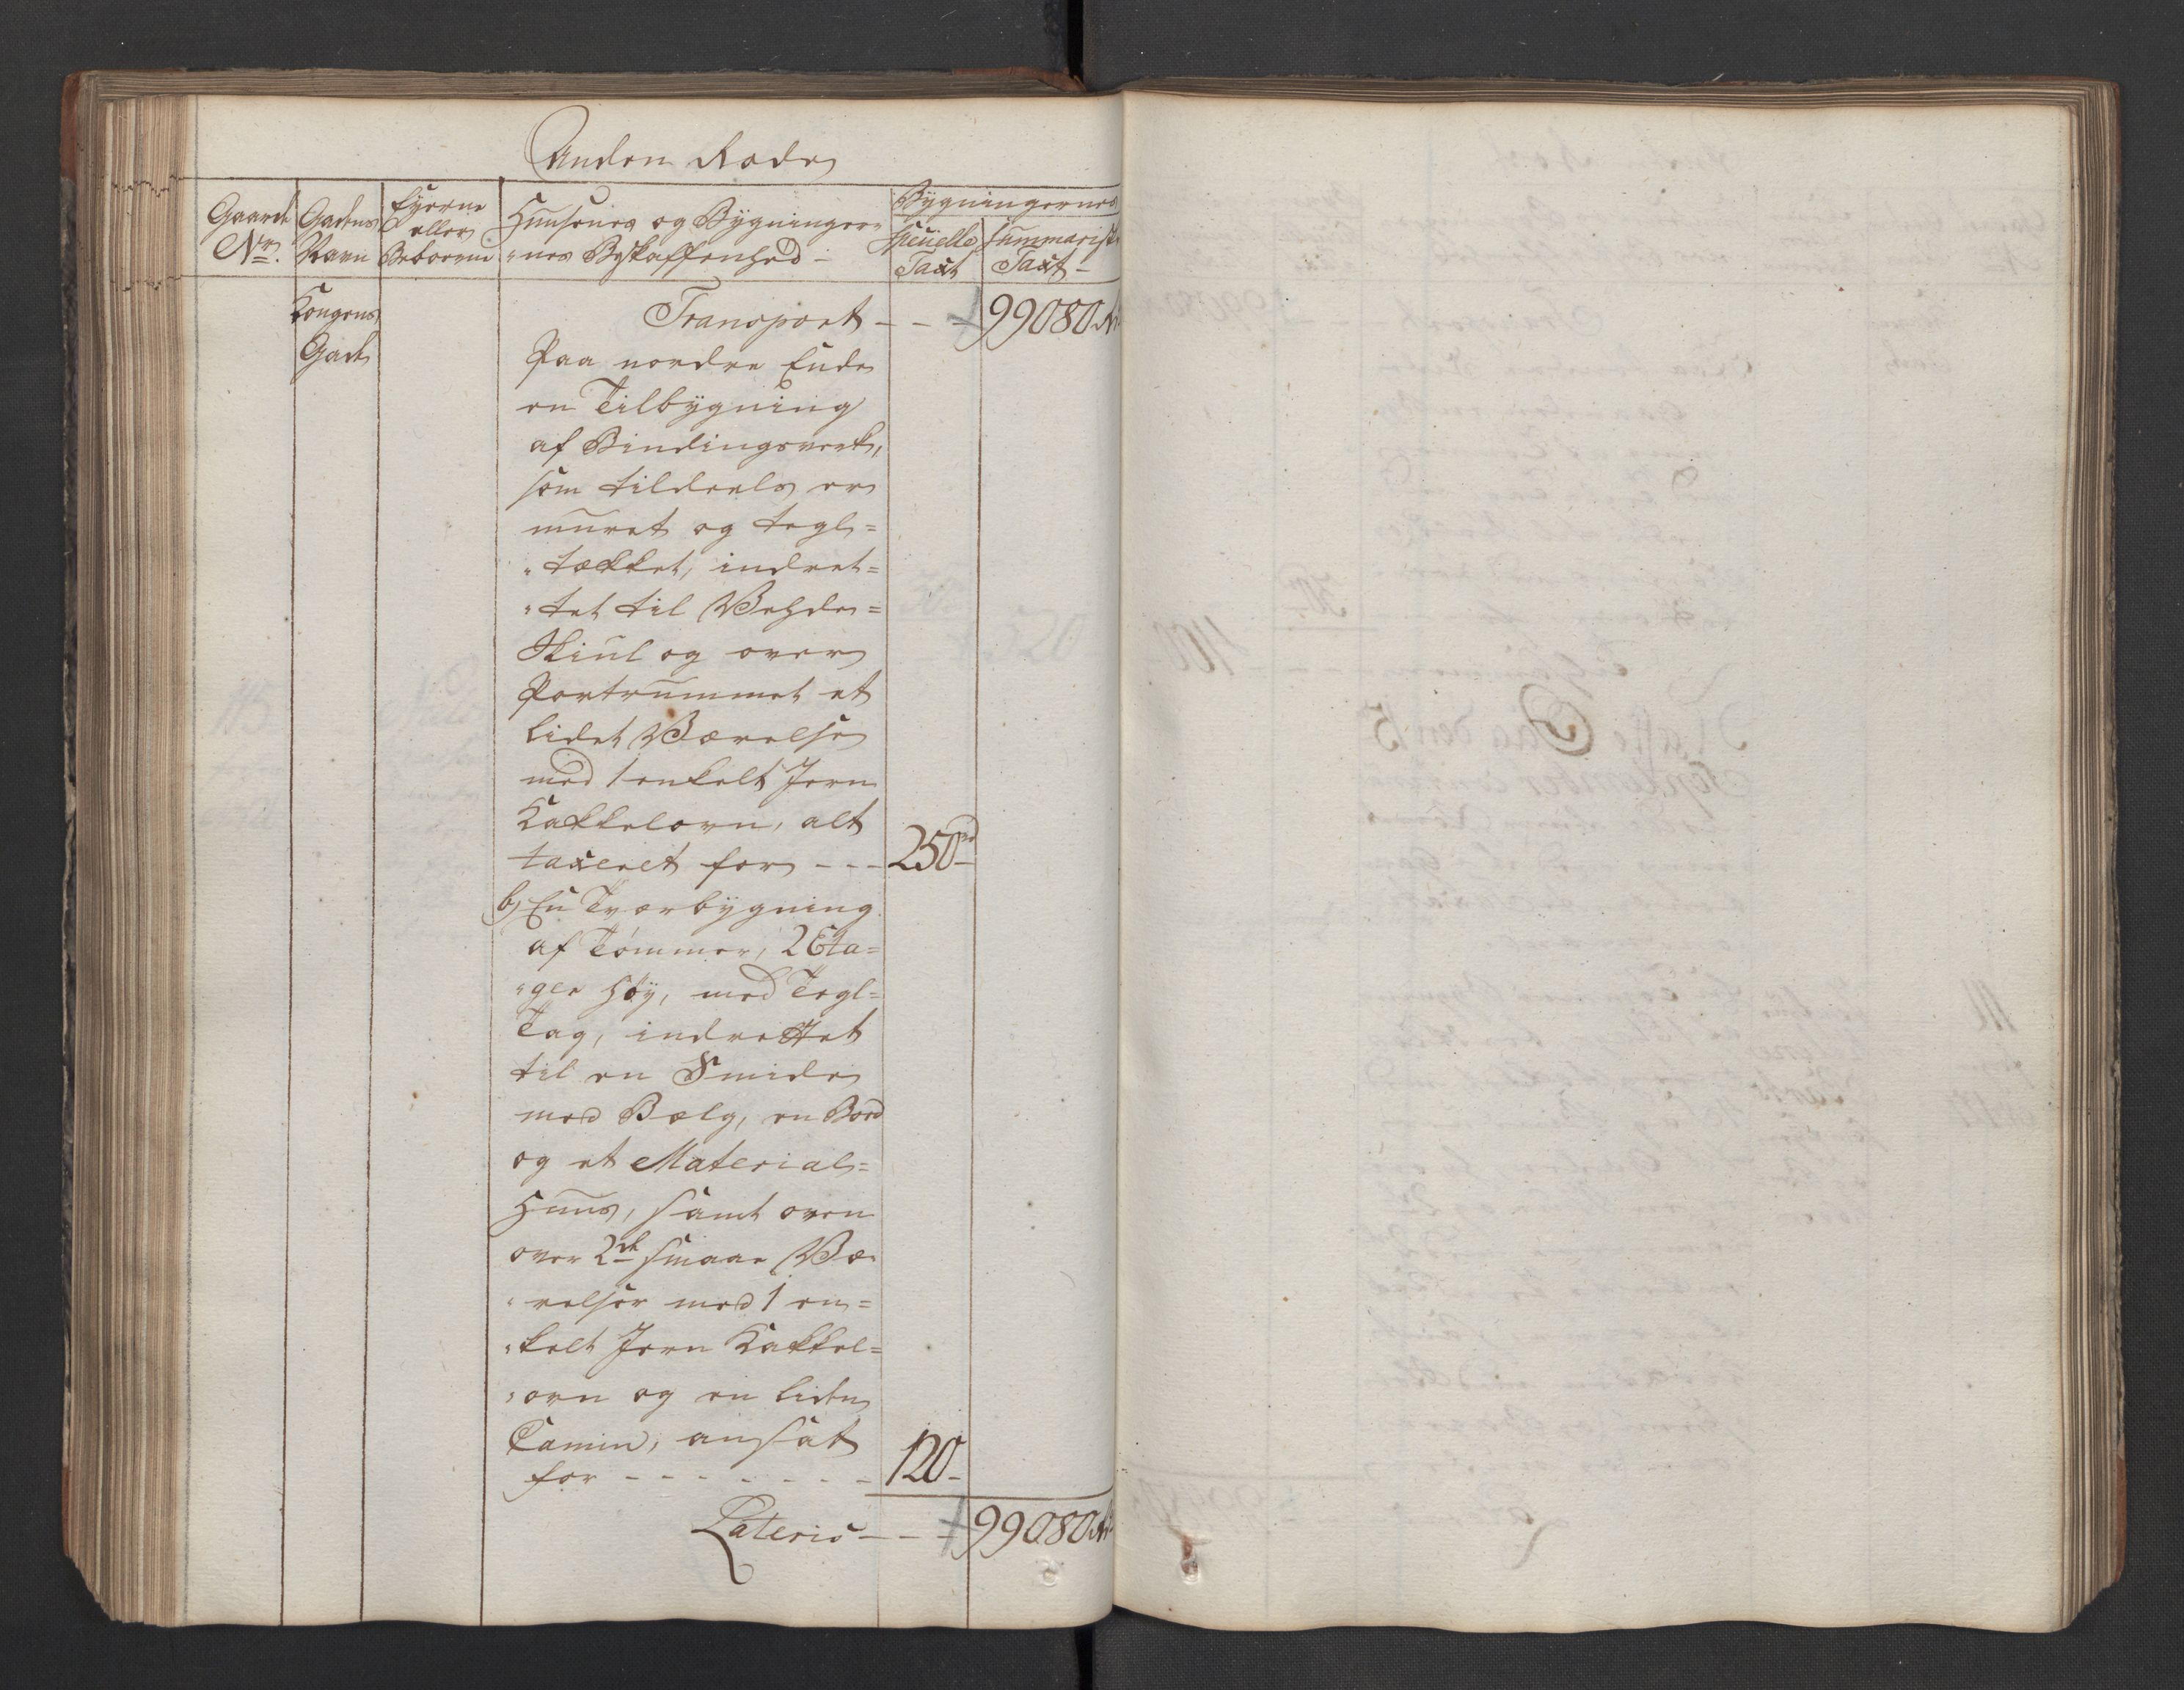 Anden Rode
Gaards No.
Gadens Navn
Eyerne eller Beboerne
Huusenes og Bygninger-
"nes Beskaffenhed -
Bygningernes
Specielle Taxt
Summariske Taxt -
Kongens
Gade
Transport - - - 99080 Rd
Paa nordre Ende
en Tilbÿgning
af Bindingsverk,
som tildeels er
muret og tegl=
"tækket, indret=
"tet til Vehde=
Skiul og over
Portrummet et
lidet Værelse
med 1 enkelt Jern
Kakkelovn, alt
taxeret for - - - 250rd -
b) En Tværbÿgning
af Tømmer, 2 Eta=
"ger høÿ, med Tegl=
Tag, indrettet
til en Smide
med Bælg, en Bod
og et Material=
Huus, samt oven
over 2de smaae Væ
"relser med 1 en=
"kelt Jern Kakkel=
"ovn og en liden
Camin, ansat
for - - - - - - - 120 -
Lateris - - - 99080 Rd